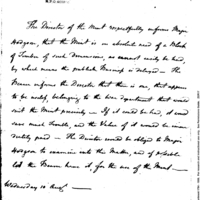 The Director of the Mint respectfully informs Major
Hodgson, that the Mint is in absolute need of a Block
of Timber of such Dimensions, as cannot easily be had,
by which means the publick Business is delayed — The
informs the Director that there is one, that appears
to be useful, belonging to the War department that would
suit the Mint precisely — If it could be had, it would
save much trouble, and the Value of it would be imme-
diately paid — The Director would be obliged to Major
Hodgson to examine into the Matter, and if possible
let the have it, for the use of the Mint —
Wednesday 10 Augt